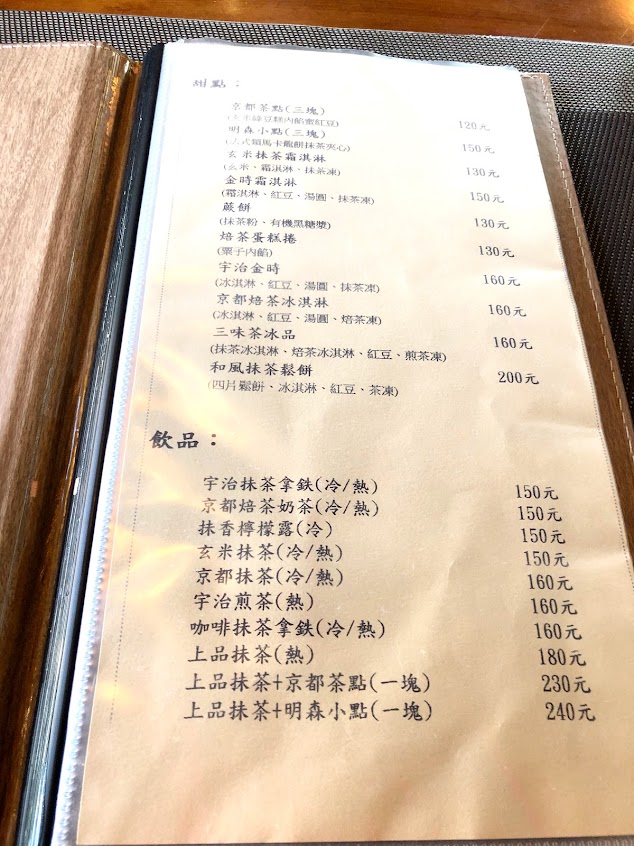 甜點：
京都茶點(三塊) 120元
(玄米綠豆糕內餡蜜紅豆)
明森小點(三塊) 150元
(法式類馬卡龍餅抹茶夾心)
玄米抹茶霜淇淋 130元
(玄米、霜淇淋、抹茶凍)
金時霜淇淋 150元
(霜淇淋、紅豆、湯圓、抹茶凍)
蕨餅 130元
(抹茶粉、有機黑糖漿)
焙茶蛋糕捲 130元
(栗子內餡)
宇治金時 160元
(冰淇淋、紅豆、湯圓、抹茶凍)
京都焙茶冰淇淋 160元
(冰淇淋、紅豆、湯圓、焙茶凍)
三味茶冰品 160元
(抹茶冰淇淋、焙茶冰淇淋、紅豆、煎茶凍)
和風抹茶鬆餅 200元
(四片鬆餅、冰淇淋、紅豆、茶凍)
飲品：
宇治抹茶拿鉄(冷/熱) 150元
京都焙茶奶茶(冷/熱) 150元
抹香檸檬露(冷) 150元
玄米抹茶(冷/熱) 150元
京都抹茶(冷/熱) 160元
宇治煎茶(熱) 160元
咖啡抹茶拿鉄(冷/熱) 160元
上品抹茶(熱) 180元
上品抹茶+京都茶點(一塊) 230元
上品抹茶+明森小點(一塊) 240元